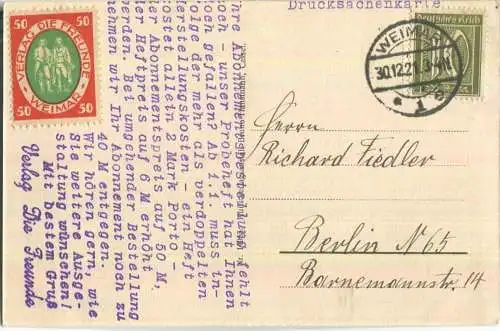 Drucksachenkarte
50 VERLAG DIE FREUNDE 50
50 WEIMAR 50
Deutsches Reich
WEIMAR
30.12.21
* 1 e
Ihre Abonnementsbestellung fehlt
noch - unser Probeheft hat Ihnen
doch gefallen? Ab 1.1. muss in-
folge der mehr als verdoppelten
Herstellungskosten - ein Heft
kostet allein 2 Mark Porto -
der Abonnementspreis auf 50 M,
der Heftpreis auf 6 M erhöht
werden. Bei umgehender Bestellung
nehmen wir Ihr Abonnement noch zu
40 M entgegen.
Wir hören gern, wie
Sie weitere Ausge-
staltung wünschen!
Mit bestem Gruß
Verlag Die Freunde
Herrn
Richard Fiedler
Berlin N 65
Barnemannstr. 14